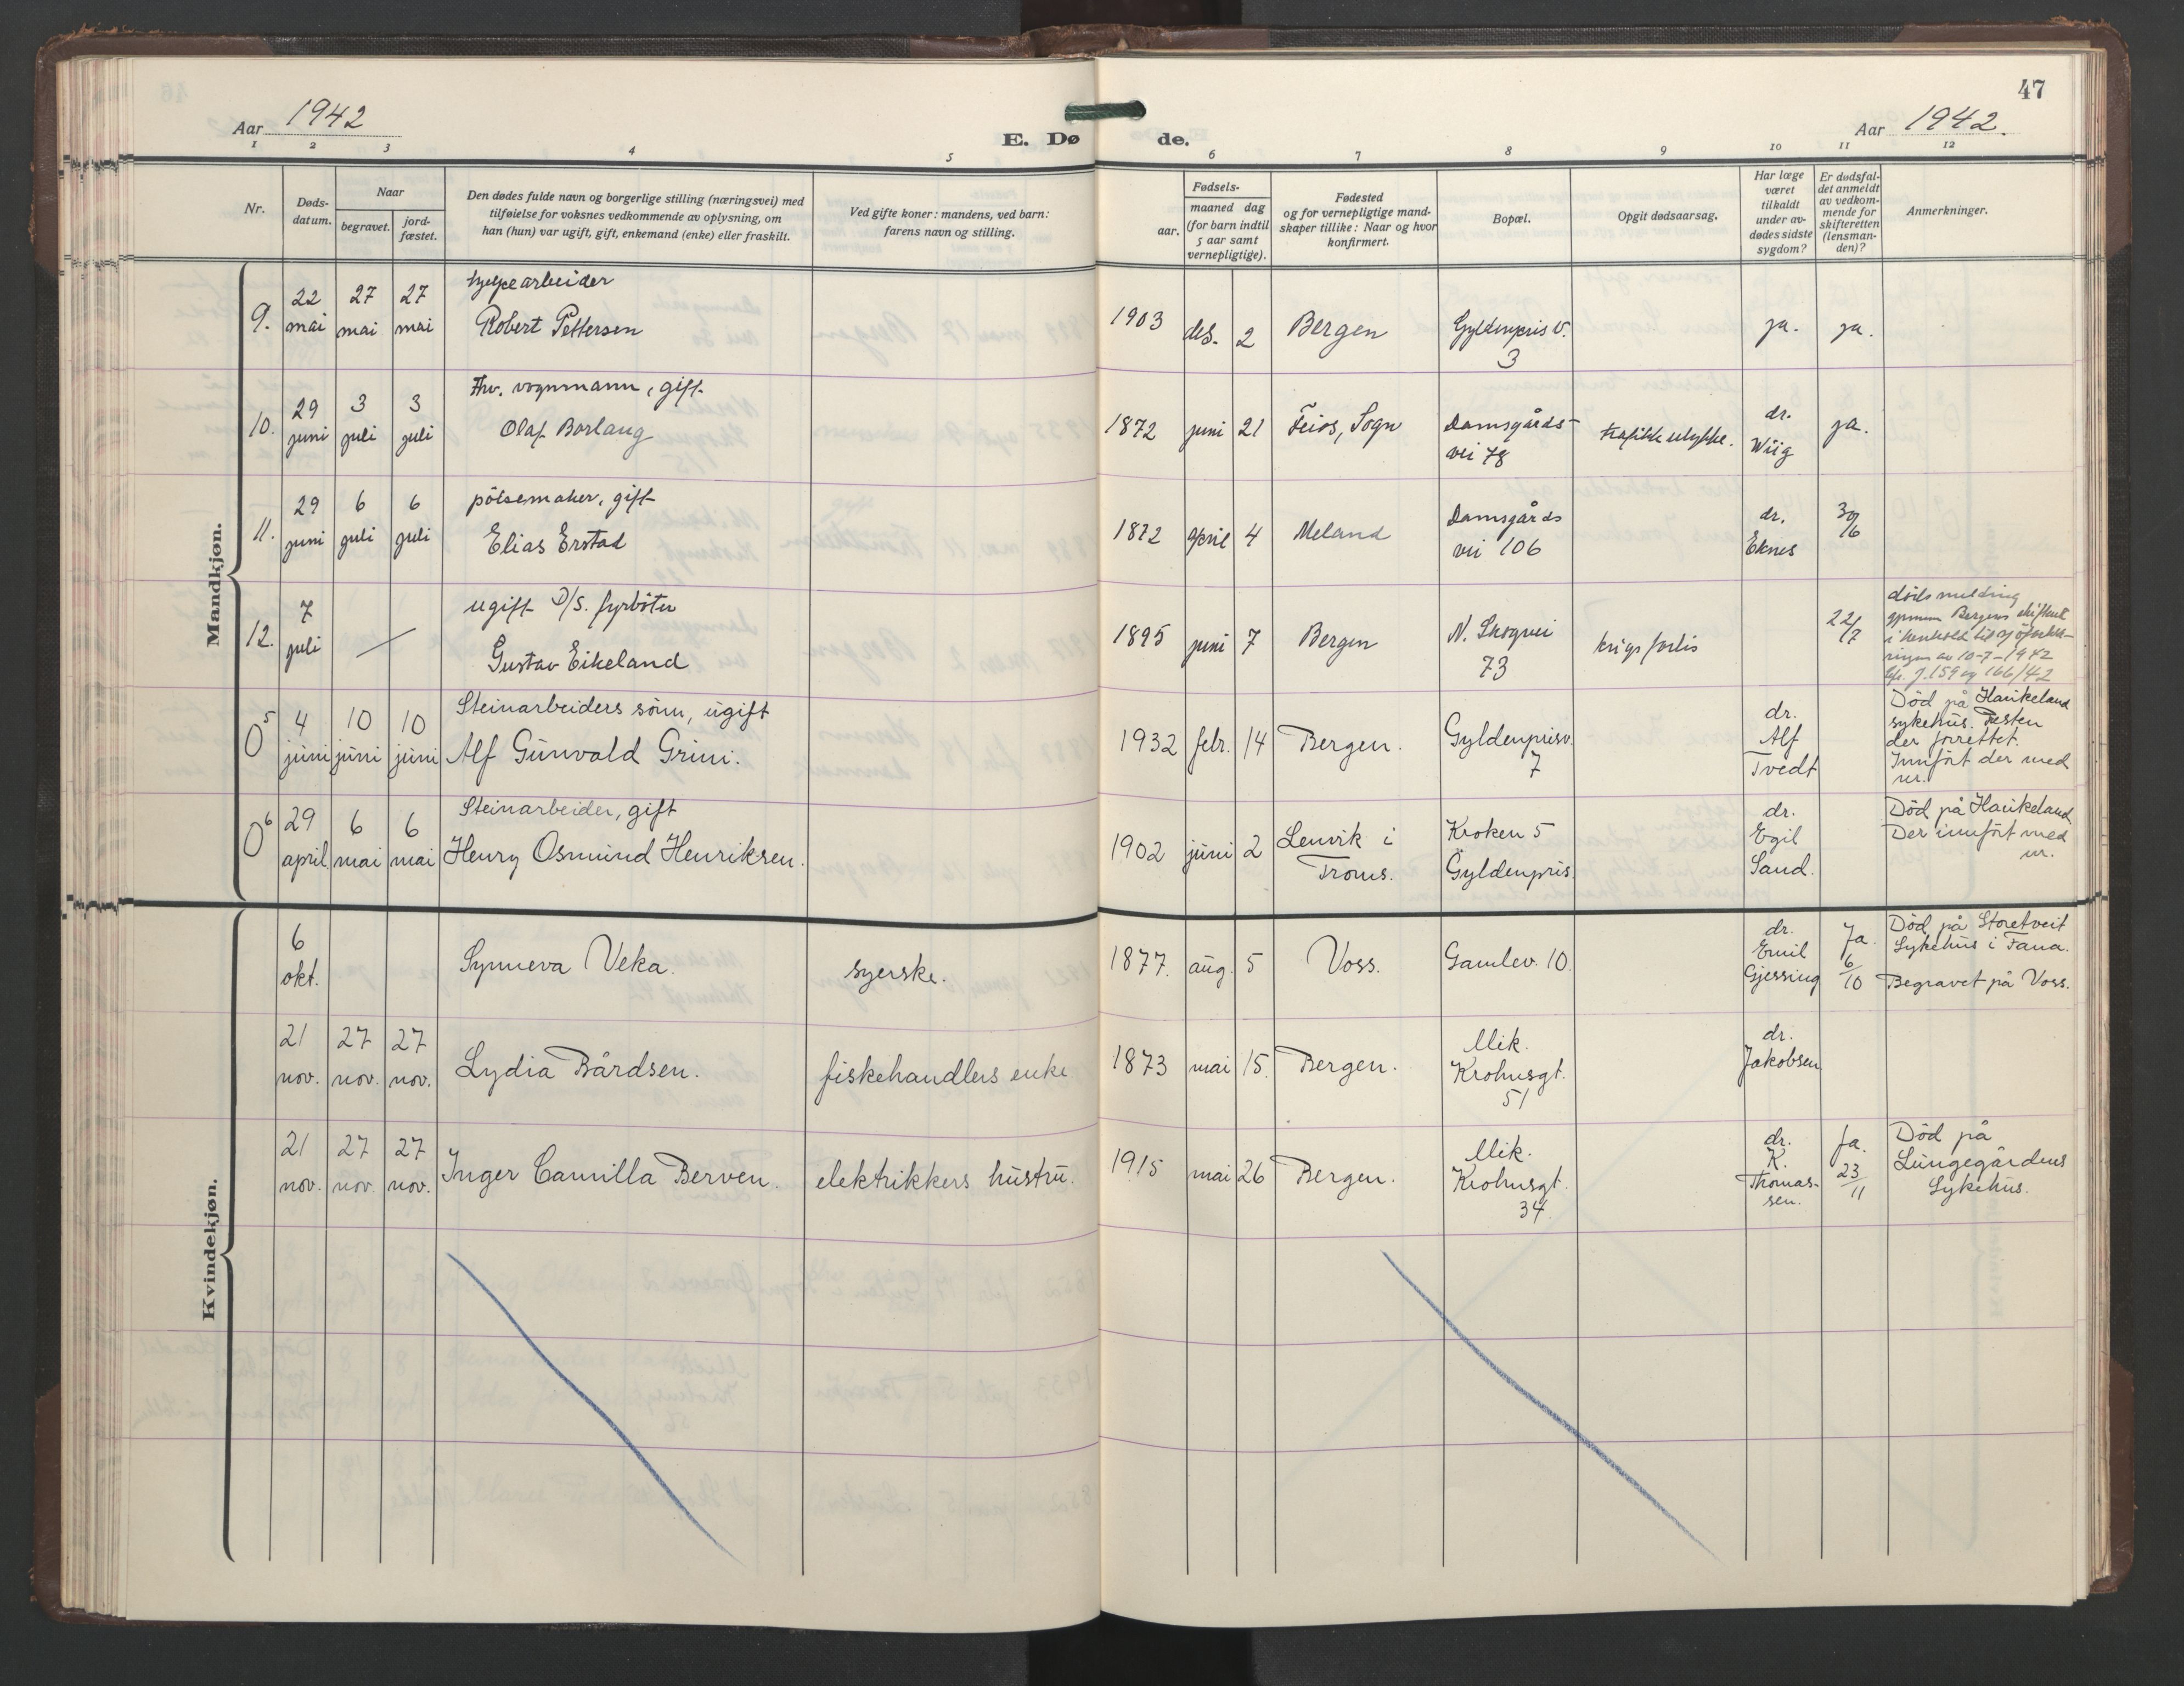 47
Aar 1942
E. Dø
de.
Aar 1942.
1 2 3 4 5 6 7 8 9 10 11 12
Nr.
Døds-
datum.
Naar
begravet.
jord-
fæstet.
Den dødes fulde navn og borgerlige stilling (næringsvei) med
tilføielse for voksnes vedkommende av oplysning, om
han (hun) var ugift, gift, enkemand (enke) eller fraskilt.
Ved gifte koner: mandens, ved barn:
farens navn og stilling.
Fødsels-
aar.
maaned dag
(for barn indtil
5 aar samt
vernepligtige).
Fødested
og for vernepligtige mand-
skaper tillike: Naar og hvor
konfirmert.
Bopæl.
Opgit dødsaarsag.
Har læge
været
tilkaldt
under av-
dødes sidste
sygdom?
Er dødsfal-
det anmeldt
av vedkom-
mende for
skifteretten
(lensman-
den)?
Anmerkninger.
Mandkjøn.
9.
22
mai
27
mai
27
mai
hjelpearbeider
Robert Pettersen
1903
des. 2
Bergen
Gyldenpris v.
3
ja.
ja.
10.
29
juni
3
juli
3
juli
Fhv. vognmann, gift
Olaf Borlaug
1872
juni 21
Feios, Sogn
Damsgårds-
vei 78
trafikkulykke.
dr.
Wiig
ja.
11.
29
juni
6
juli
6
juli
pölsemaker, gift
Elias Erstad
1872
april 4
Meland
Damsgårds
vei 106
dr.
Eknes
30/6
12.
7
juli
ugift D/S. fyrböter
Gustav Eikeland
1895
juni 7
Bergen
N. Skogvei
73
krigsforlis
22/7
dödsmelding
gjennem Bergens skifterett
i henhold til sjöforkla-
ringen av 10-7-1942
j. 159 og 166/42
0 5
4
juni
10
juni
10
juni
Steinarbeiders sönn, ugift
Alf Gunvald Grini.
1932
febr. 14
Bergen.
Gyldenprisv.
7
dr.
Alf
Tvedt
Död på Haukeland
sykehus. Resten
der forrettet.
Innfört der med
nr.
0 6
29
april
6
mai
6
mai
Steinarbeider, gift
Henry Osmund Henriksen.
1902
juni 2
Lenvik i
Troms.
Kroken 5
Gyldenpris.
dr.
Egil
Sand.
Död på Haukeland
Der innfört med
nr.
Kvindekjøn.
6
okt.
Synneva Veka.
syerske.
1877.
aug. 5
Voss.
Gamlev. 10.
dr.
Emil
Gjessing
Ja.
6/10
Död på Storetveit
Sykehus i Fana.
Begravet på Voss.
21
nov.
27
nov.
27
nov.
Lydia Bårdsen.
fiskehandlers enke
1873
mai 15.
Bergen.
Mik.
Krohnsgt.
51
dr.
Jakobsen
21
nov.
27
nov.
27
nov.
Inger Camilla Berven.
elektrikkers hustru.
1915
mai 26
Bergen.
Mik.
Krohnsgt.
34.
dr.
K.
Thomas-
sen.
Ja.
23/11
Död på
Lungegårdens
Sykehus.